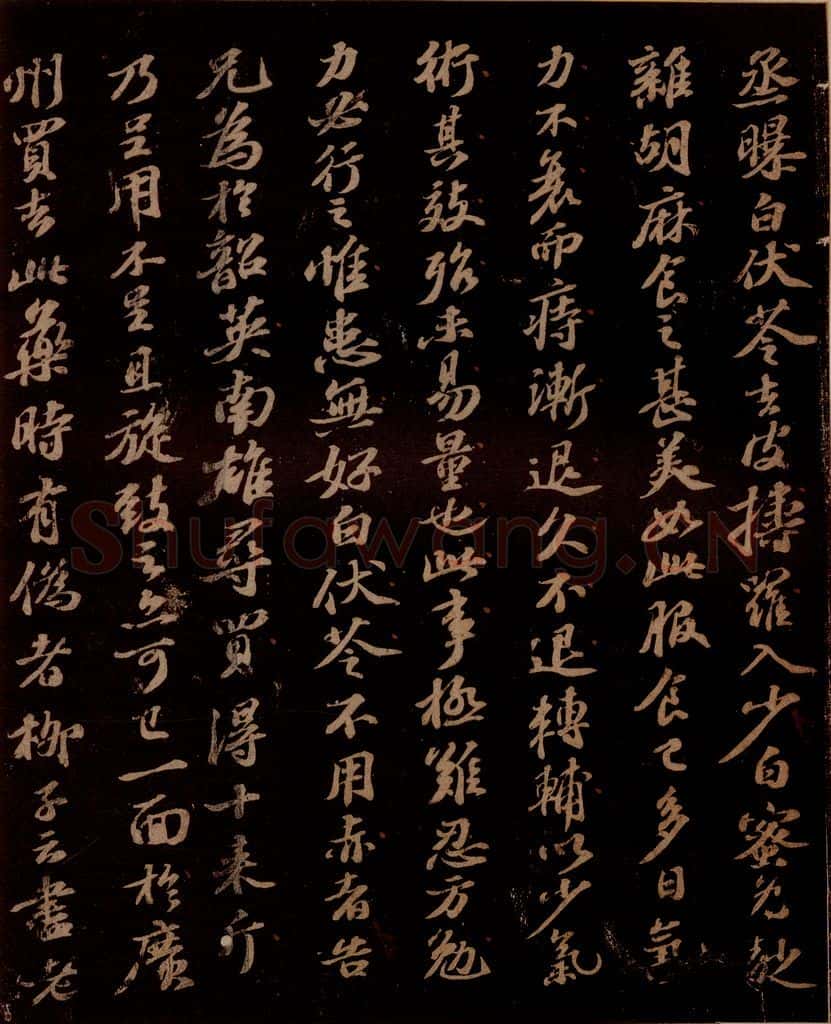 烝曝白伏苓去皮擣羅入少白蜜為麨
雜胡麻食之甚美如此服食已多日氣
力不衰而痔漸退久不退轉輔以少氣
術其效殆未易量也此事極難忍方勉
力必行之惟患無好白伏苓不用赤者告
兄為於韶英南雄尋買得十來斤
乃足用不足且旋致之亦可已一面於廣
州買去此藥時有偽者柳子云盡老
Shufawang.CN